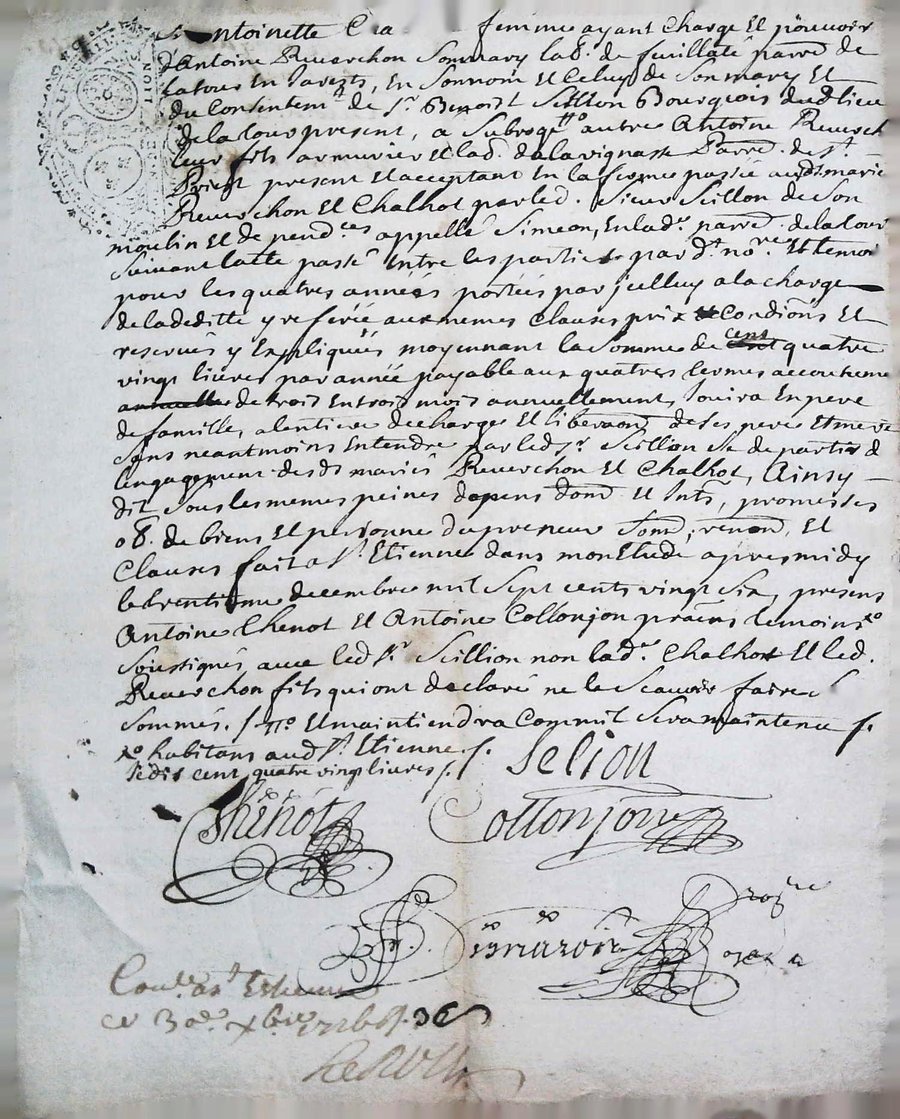 Antoinette femme ayant Charge Et pouvoir
d'Antoine Reverchon Son mary lab.r de feuillate parr.e de
latour En Javests, En Son nom Et Celuy de Son mary Et
du Consentem.t de S.r Benoist Scillion Bourgeois dud. lieu
de latour present, a Subrogé autre Antoine Reverch
leur fils armurier Et lad. de la vignasse Parr.e de S.t
Priest present Et acceptant En la ferme passée aud. marié
Reverchon Et Chalhot par led. Sieur Scillon de Son
moulin Et de pend.ces appellé Simeon, En lad.e parr.e de la tour
Suivant latte passé Entre les parties par d.t no.re Et temoi
pour les quatres années portées par jcelluy a la charge
de la deditte y referée aux memes Clauses prix Et Condions Et
reservés y Expliquées moyennant la Somme de cent quatre
vingt livres par année payable aux quatres termes accoutumé
de trois En trois mois annuellement, Jouira En pere
de famille, a l'entiere decharge Et liberaon de Ses pere Et mere
Sans neantmoins Entendre par led. S.r Scillion Se departir d
l'engagement desd. mariés Reverchon Et Chalhot, Ainsy
dit Sous les memes peines depens dom. Et Intts, promesses
ob. de biens Et personne du preneur Soum, renon, Et
Clauses fait a S.t Etienne dans mon Etude apres midy
le trentieme decembre mil Sept cents vingt Six, presens
Antoine Chenot Et Antoine Collonjon temoins
Soussignés avec led. S.r Scillion non lad.e Chalhot Et led.
Reverchon fils qui ont declaré ne le Scavoir faire
Sommés. Et maintiendra Comm'il Sera maintenu
habitans aud. S.t Etienne
cent quatre vingt livres
Selion
Chenot
Collonjon
Con.le a S.t Estienne
ce 30e xbre 1726